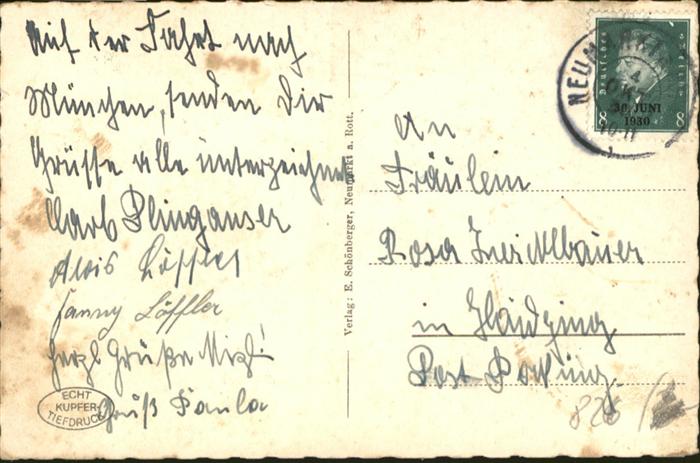 Auf der Fahrt nach
München, senden Dir
Grüsse alle Unterzeichne
Plinganser
Alois Löffler
Fanny Löffler
Herzl Grüße
Gruß Paula
ECHT
KUPFER-
TIEFDRUCK
Verlag: E. Schönberger, Neumarkt a. Rott.
NEUMARKT
4
OKT
Deutsches Reich
30. JUNI
1930
8 8
An
Fräulein
Rosa
in
Post
826